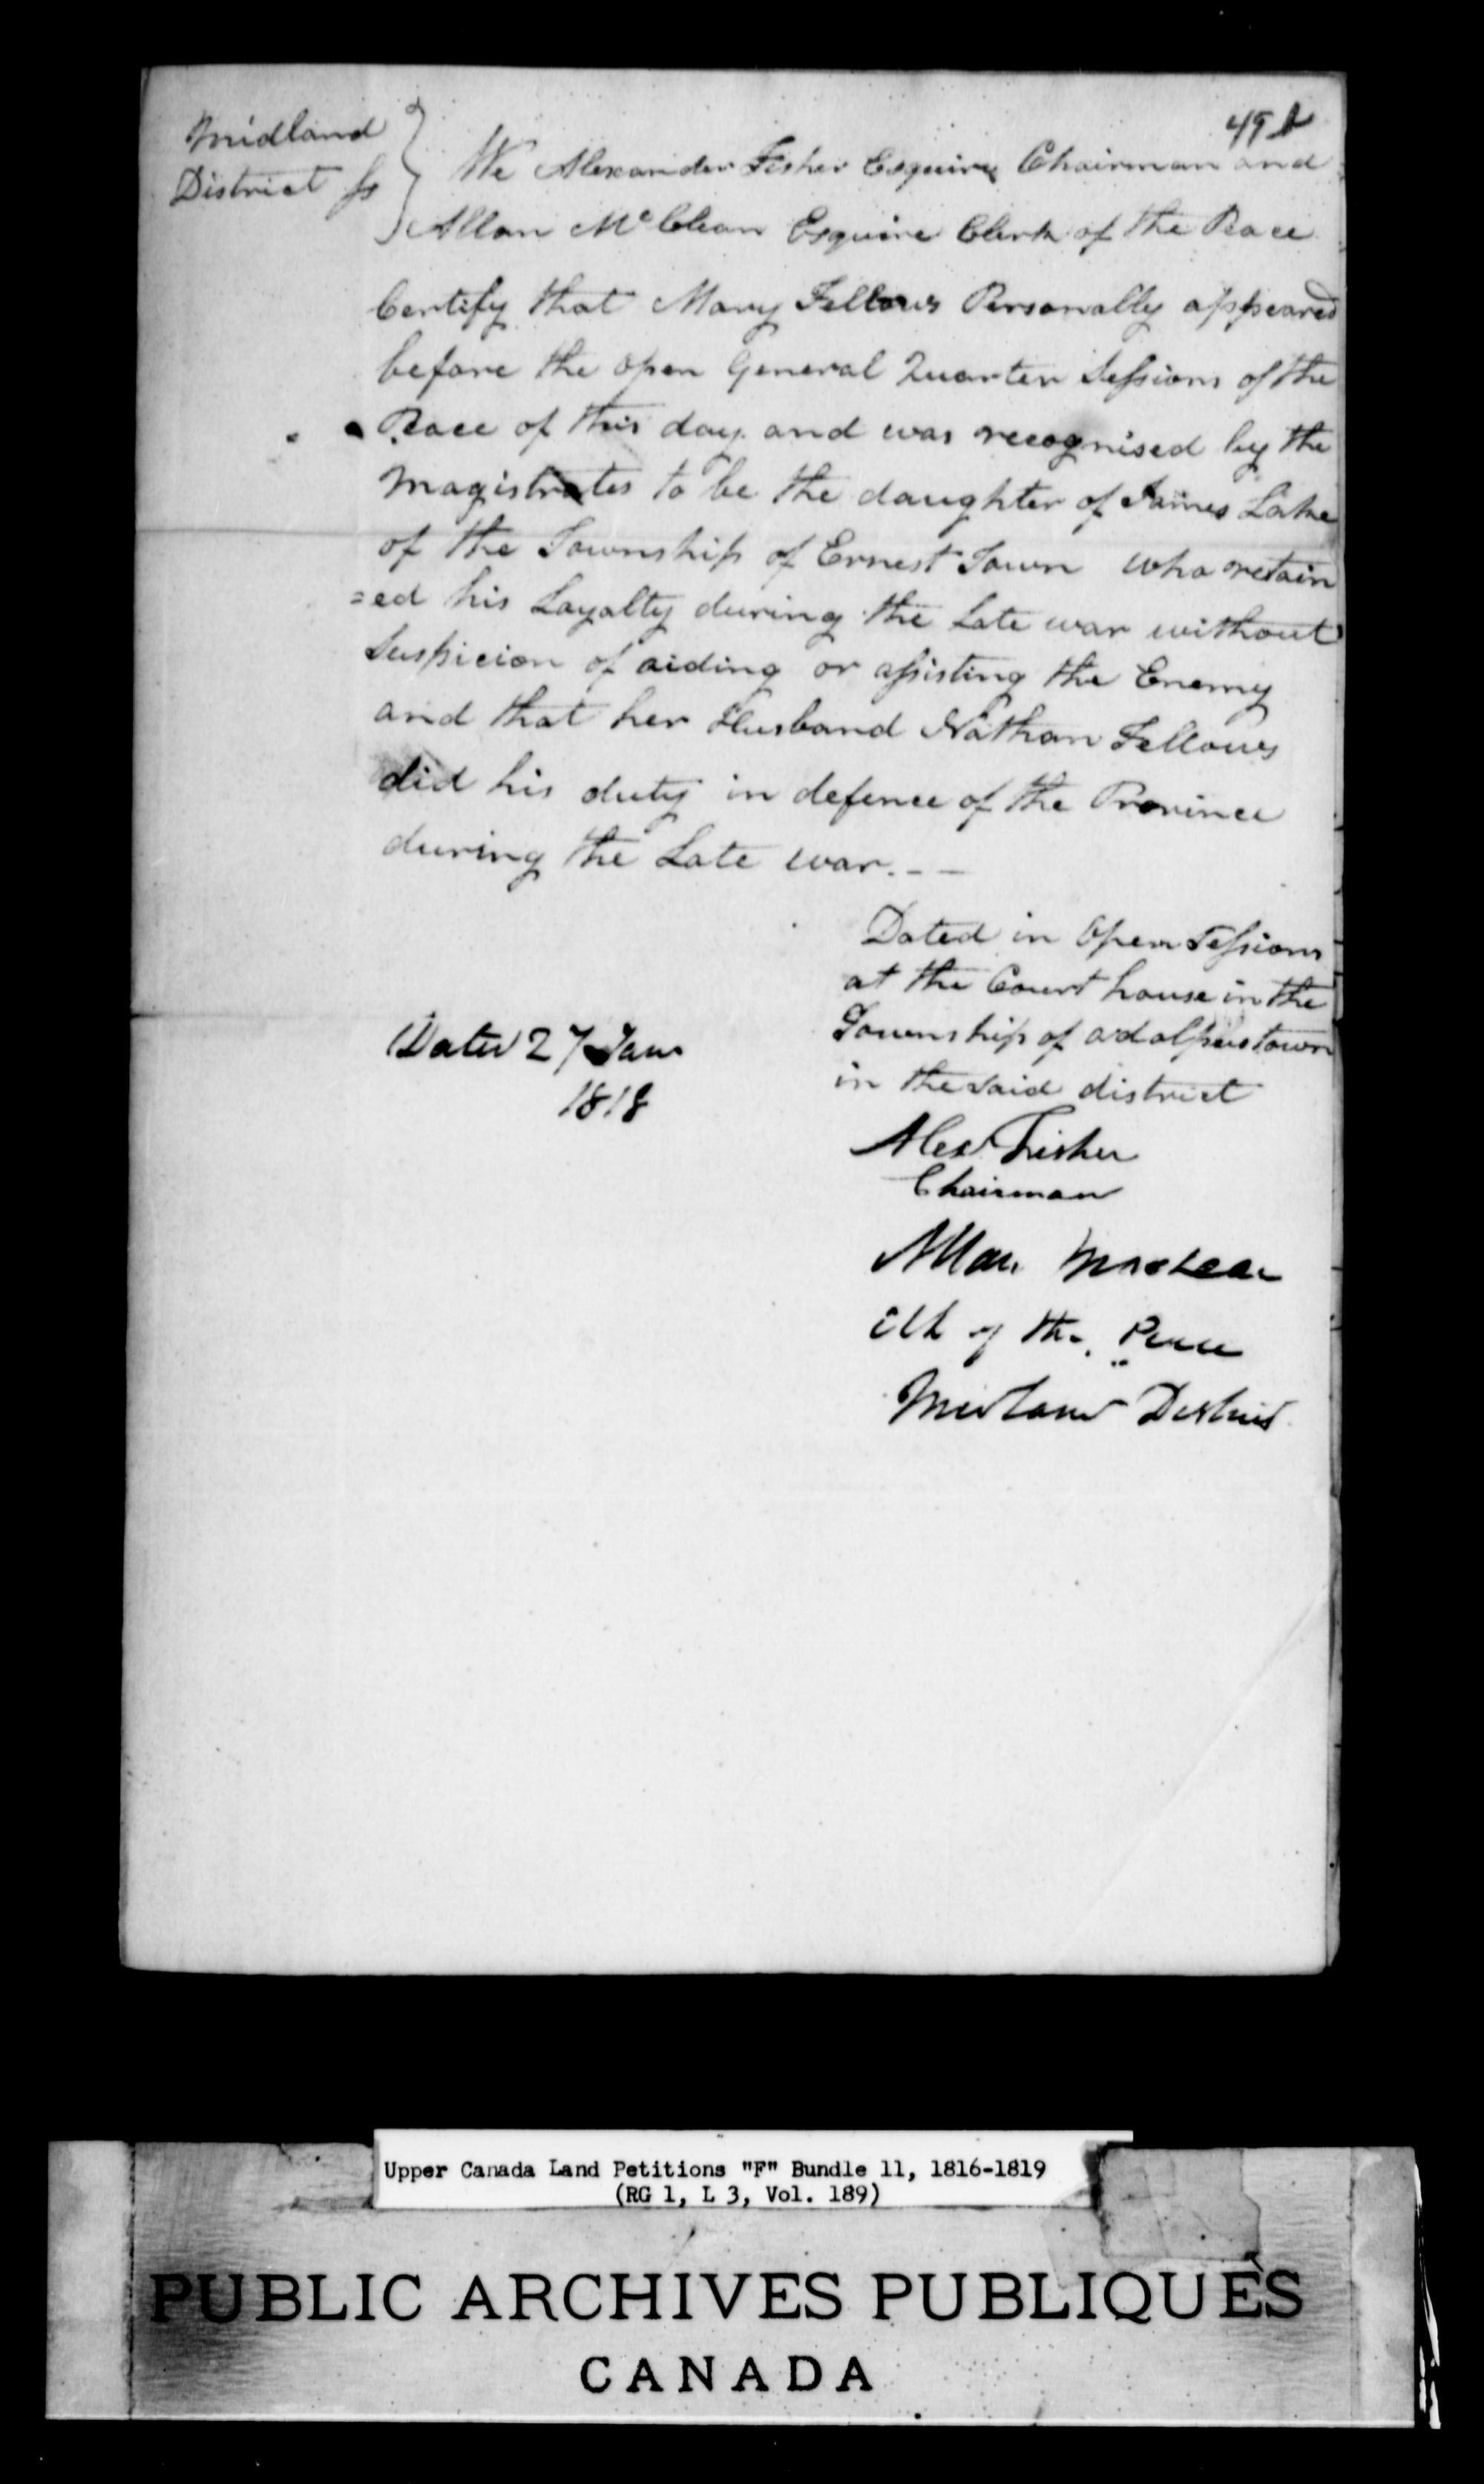 49b
Midland
District ss
We Alexander Fisher Esquire Chairman and
Allan McClean Esquire Clerk of the Peace
Certify that Mary Fellows Personally appeared
before the open General Quarter Sessions of the
Peace of this day and was recognised by the
Magistrates to be the daughter of James Lake
of the Township of Ernest Town who retain
=ed his Loyalty during the Late war without
Suspicion of aiding or assisting the Enemy
and that her Husband Nathan Fellows
did his duty in defence of the Province
during the Late war. - -
Dated in Open Sessions
at the Court house in the
Township of adolphustown
in the said district
Dated 27 Jany
1818
Alex Fisher
Chairman
Allan MacLean
Clk of the Peace
Midland District
Upper Canada Land Petitions "F" Bundle 11, 1816-1819
(RG 1, L 3, Vol. 189)
PUBLIC ARCHIVES PUBLIQUES
CANADA